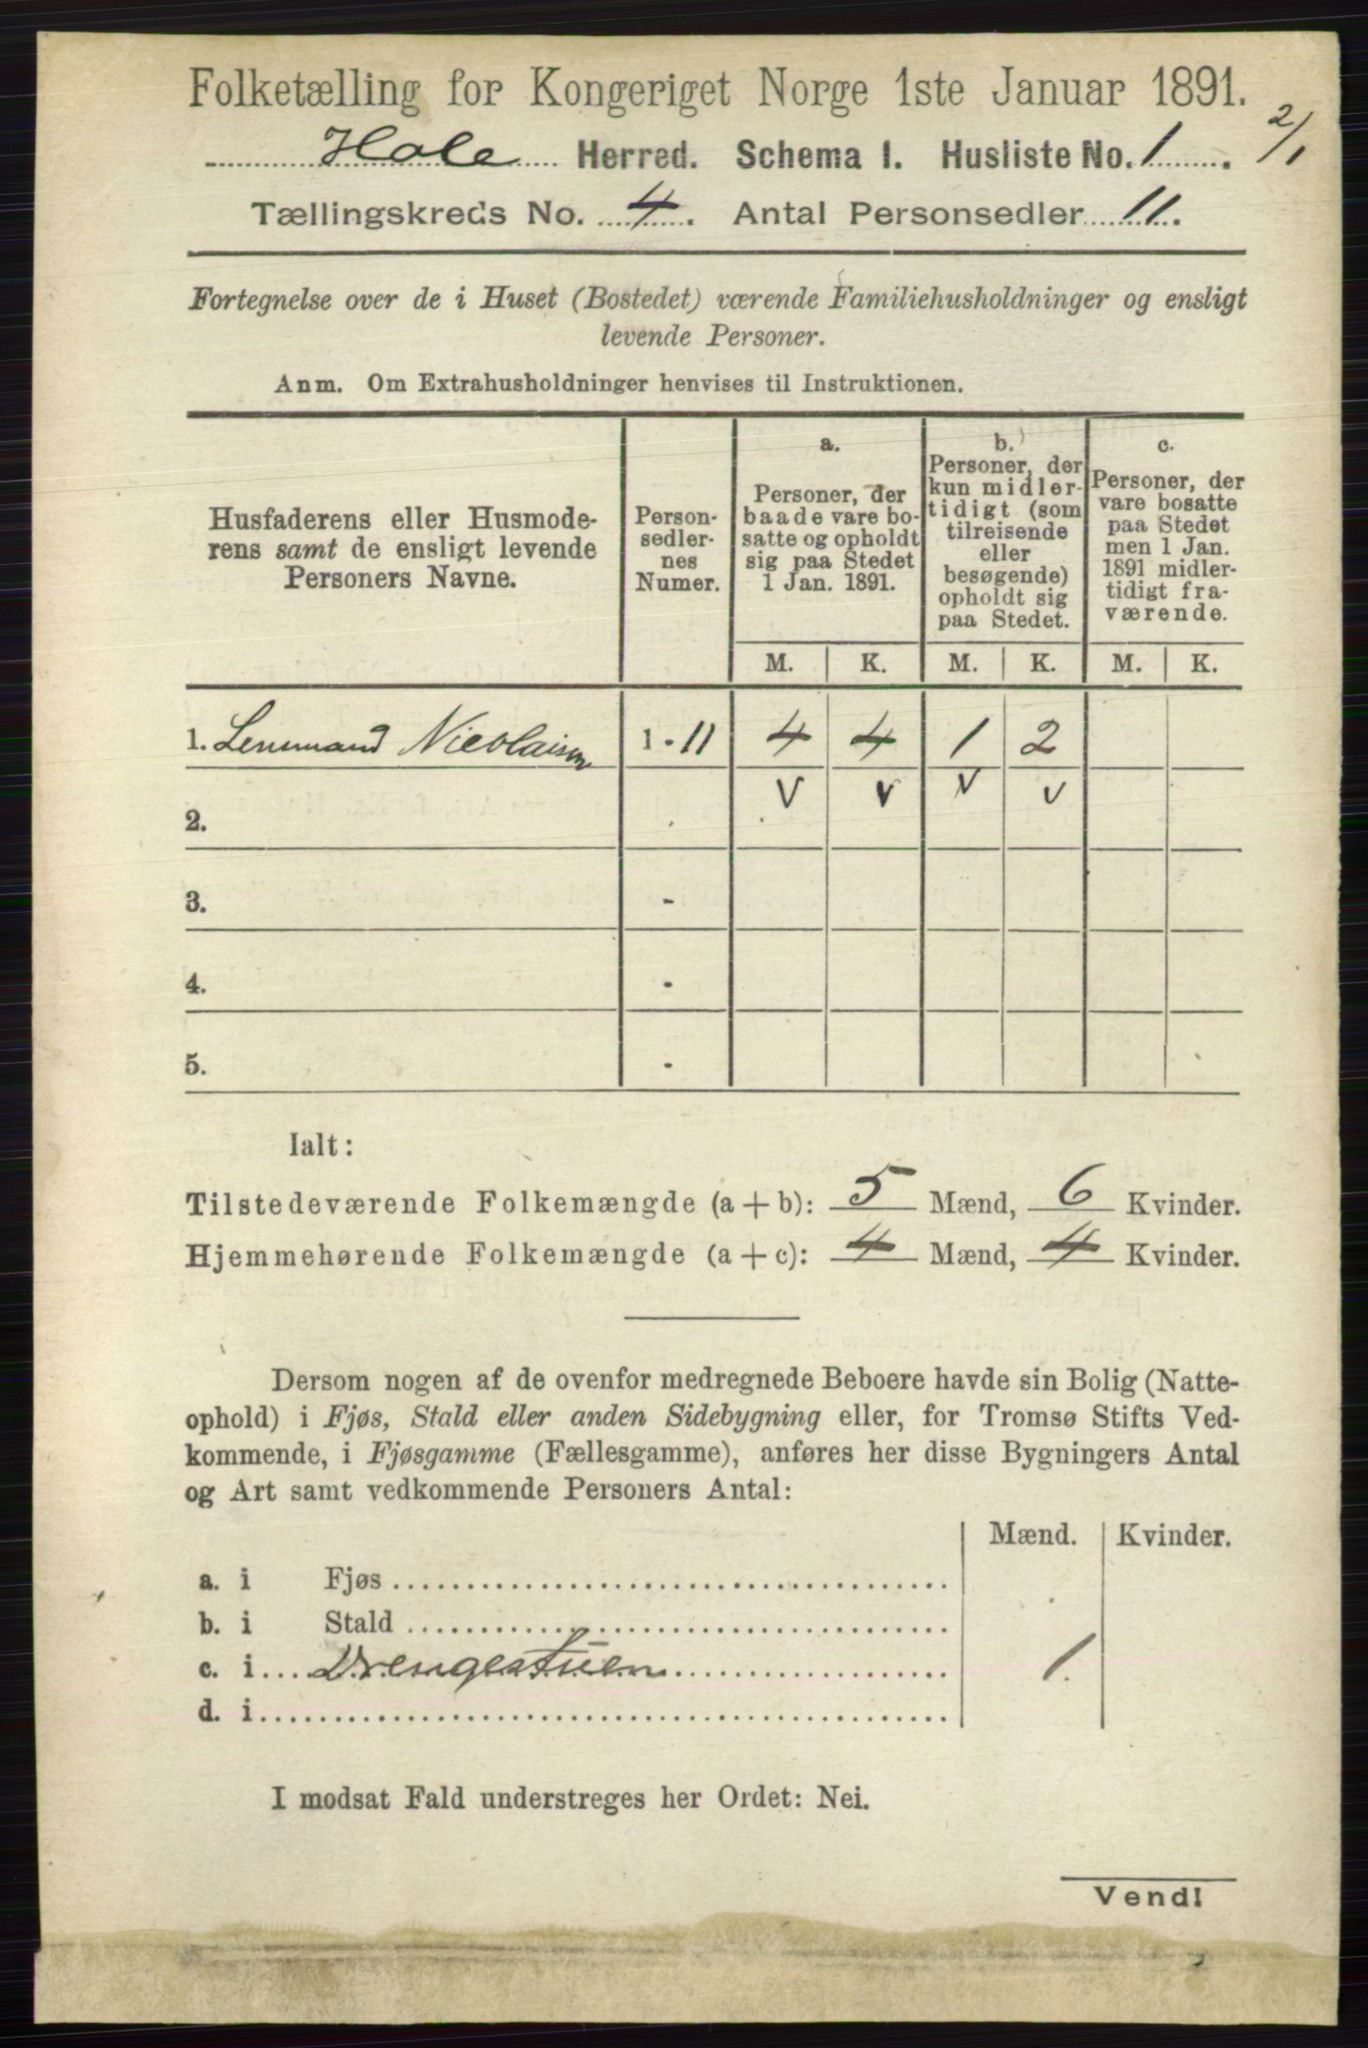 Folketælling for Kongeriget Norge 1ste Januar 1891.
Hole Herred. Schema I. Husliste No. 1. 2/1
Tællingskreds No. 4. Antal Personsedler 11.
Fortegnelse over de i Huset (Bostedet) værende Familiehusholdninger og ensligt
levende Personer.
Anm. Om Extrahusholdninger henvises til Instruktionen.
Husfaderens eller Husmode-
rens samt de ensligt levende
Personers Navne.
Person-
sedler-
nes
Numer.
a.
Personer, der
baade vare bo-
satte og opholdt
sig paa Stedet
1 Jan. 1891.
b.
Personer, der
kun midler-
tidigt (som
tilreisende
eller
besøgende)
opholdt sig
paa Stedet.
c.
Personer, der
vare bosatte
paa Stedet
men 1 Jan.
1891 midler-
tidigt fra-
værende.
M. K. M. K. M. K.
1. Lensmand Nicolaisen 1 - 11 4 4 1 2
v v v v
2.
3. -
4. -
5. -
Ialt:
Tilstedeværende Folkemængde (a + b): 5 Mænd, 6 Kvinder.
Hjemmehørende Folkemængde (a + c): 4 Mænd, 4 Kvinder.
Dersom nogen af de ovenfor medregnede Beboere havde sin Bolig (Natte-
ophold) i Fjøs, Stald eller anden Sidebygning eller, for Tromsø Stifts Ved-
kommende, i Fjøsgamme (Fællesgamme), anføres her disse Bygningers Antal
og Art samt vedkommende Personers Antal:
Mænd. Kvinder.
a. i Fjøs
b. i Stald
c. i Drengestuen 1.
d. i
I modsat Fald understreges her Ordet: Nei.
Vend!